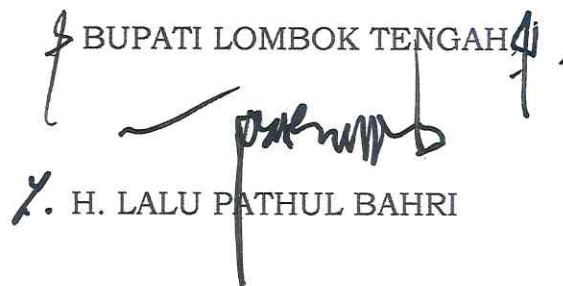 BUPATI LOMBOK TENGAH
H. LALU PATHUL BAHRI